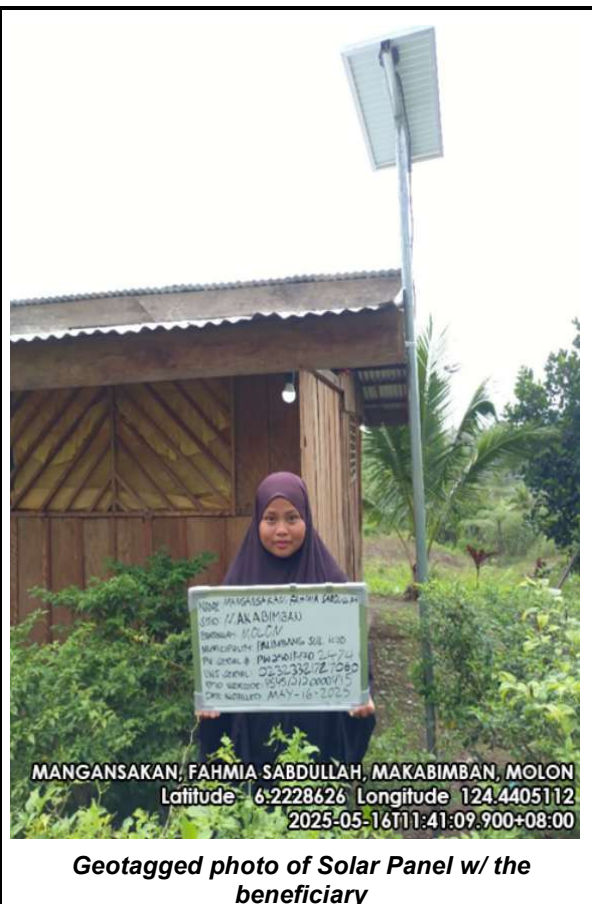 NAME: MANGANSAKAN, FAHMIA SABDULLAH
SITIO: MAKABIMBAN
BARANGAY: MOLON
MUNICIPALITY: PALIMBANG SUL. KUD
PV SERIAL #: 2474
DATE INSTALLED: MAY-16-2025
MANGANSAKAN, FAHMIA SABDULLAH, MAKABIMBAN, MOLON
Latitude 6.2228626 Longitude 124.4405112
2025-05-16T11:41:09.900+08:00
Geotagged photo of Solar Panel w/ the
beneficiary